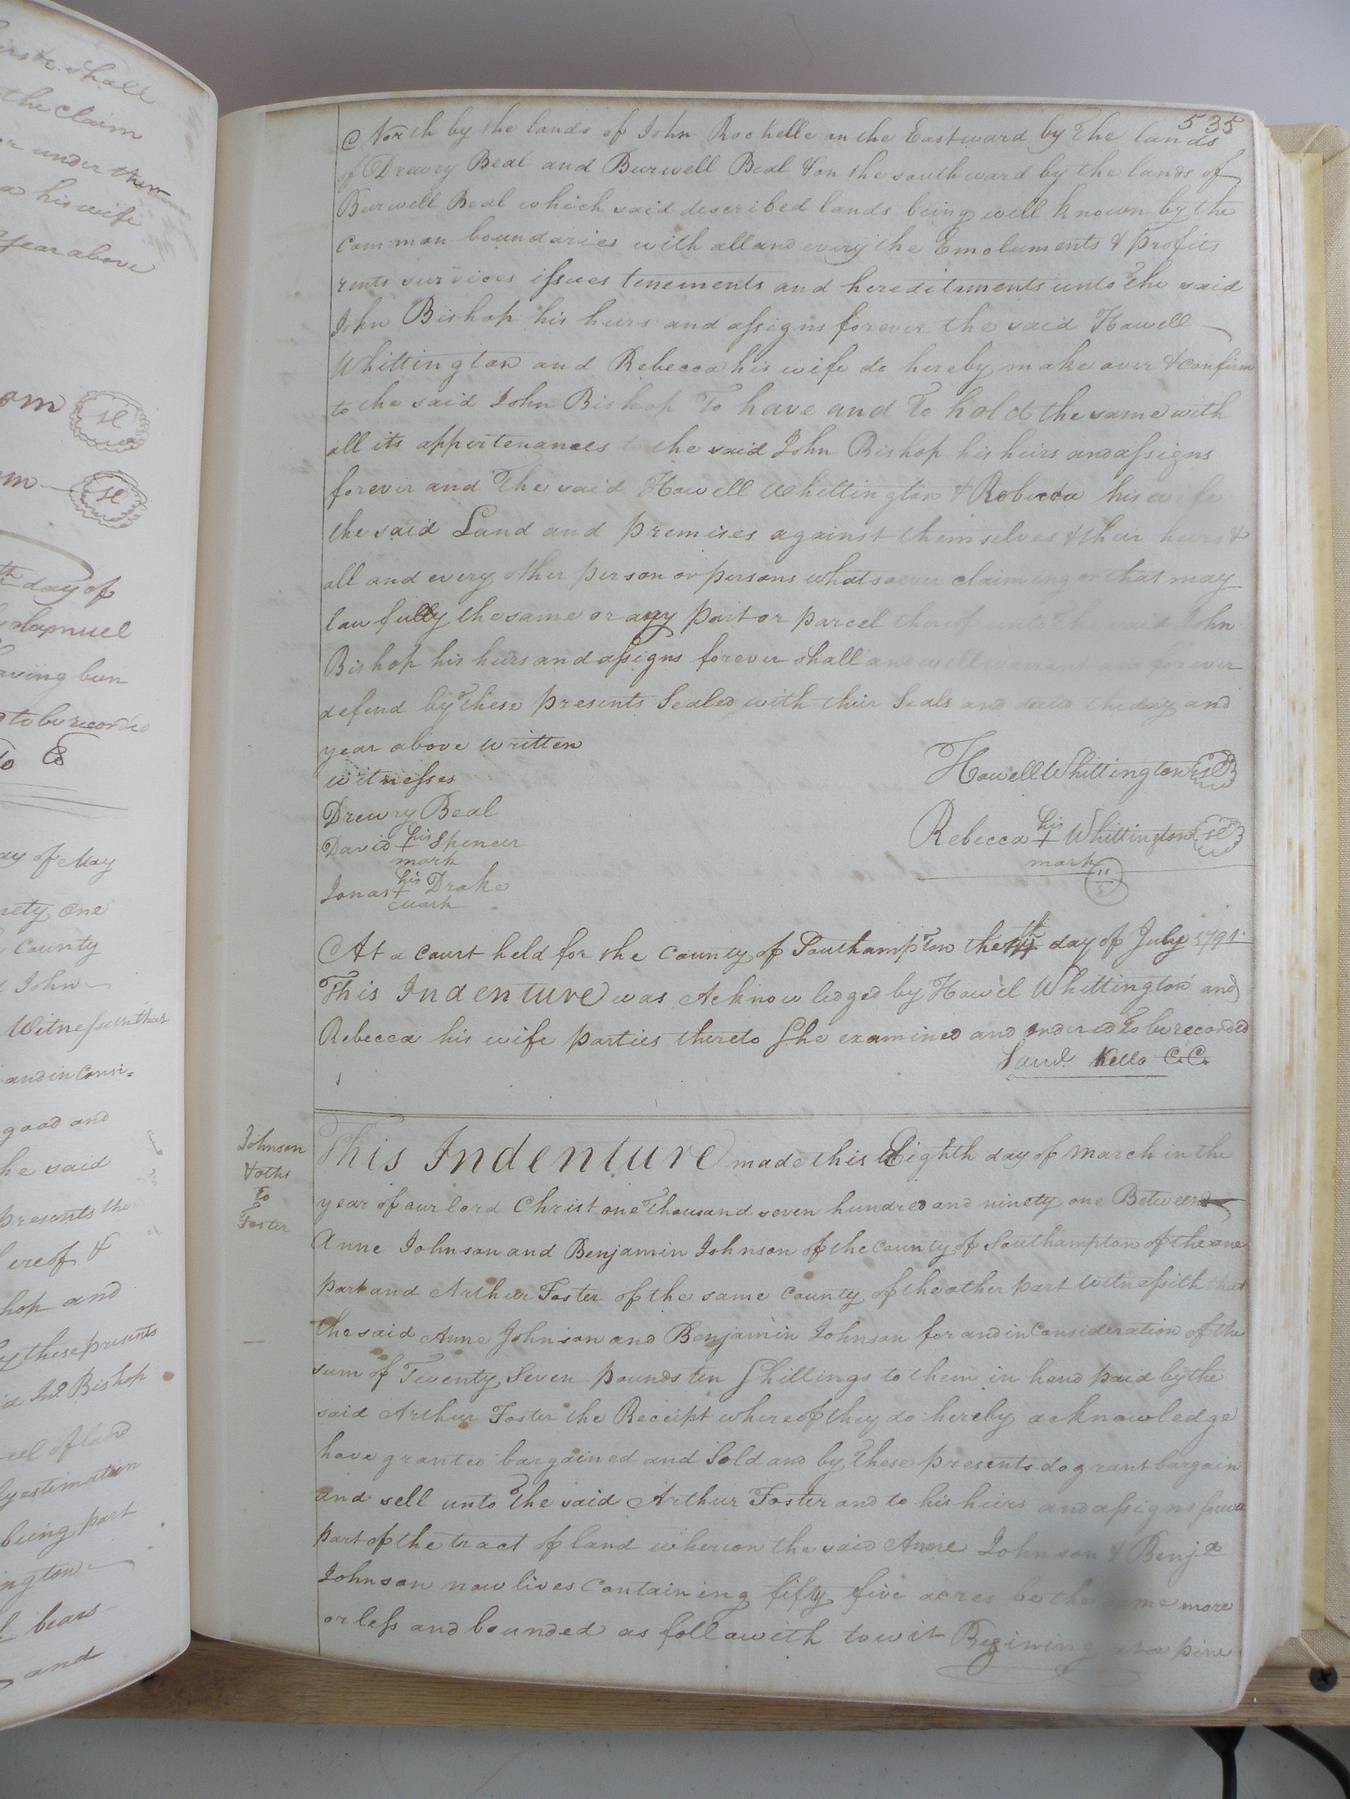 irs &c. shall
the claim
or under them
a his wife
year above
om
se
m
se
th day of
Samuel
having been
d to be recorded
To &
ay of May
nety one
County
John
Witnesseth that
and in Consi=
good and
he said
presents the
ereof &
hop and
y these presents
id Jno. Bishop
cel of land
by estimation
being part
ington
bears
and
535
North by the lands of John Rochelle on the Eastward by the lands
of Drewry Beal and Burwell Beal & on the southward by the lands of
Burwell Beal which said described lands being well known by the
common boundaries with all and every the Emoluments & profits
rents survices issues tenements and hereditaments unto the said
John Bishop his heirs and assigns forever the said Howell
Whittington and Rebecca his wife do hereby make over & confirm
to the said John Bishop To have and To hold the same with
all its appertenances to the said John Bishop his heirs and assigns
forever and the said Howell Whittington & Rebecca his wife
the said Land and premises against themselves & their heirs &
all and every other person or persons whatsoever claiming or that may
lawfully the same or any part or parcel thereof unto the said John
Bishop his heirs and assigns forever shall and will warrant and forever
defend by these presents Sealed with their Seals and dated the day and
year above written
Witnesses
Howell Whittington se
Drewry Beal
David his + mark Spencer
Rebecca his + mark Whittington se
Jonas his + mark Drake
At a court held for the County of Southampton the 14th day of July 1791.
This Indenture was Acknowledged by Howel Whittington and
Rebecca his wife parties thereto She examined and ordered To be recorded
Saml. Kello C.C.
Johnson
& oths
To
Foster
This Indenture made this Eighth day of March in the
year of our lord Christ one Thousand seven hundred and ninety one Between
Anne Johnson and Benjamin Johnson of the County of Southampton of the one
part and Arthur Foster of the same County of the other part witnessith that
the said Anne Johnson and Benjamin Johnson for and in Consideration of the
sum of Twenty Seven pounds ten Shillings to them in hand paid by the
said Arthur Foster the Receipt whereof they do hereby acknowledge
have granted bargained and Sold and by these presents do grant bargain
and sell unto the said Arthur Foster and to his heirs and assigns forever
part of the tract of land whereon the said Anne Johnson & Benja
Johnson now lives containing fifty five acres be the same more
or less and bounded as followith to wit Begining at a pine